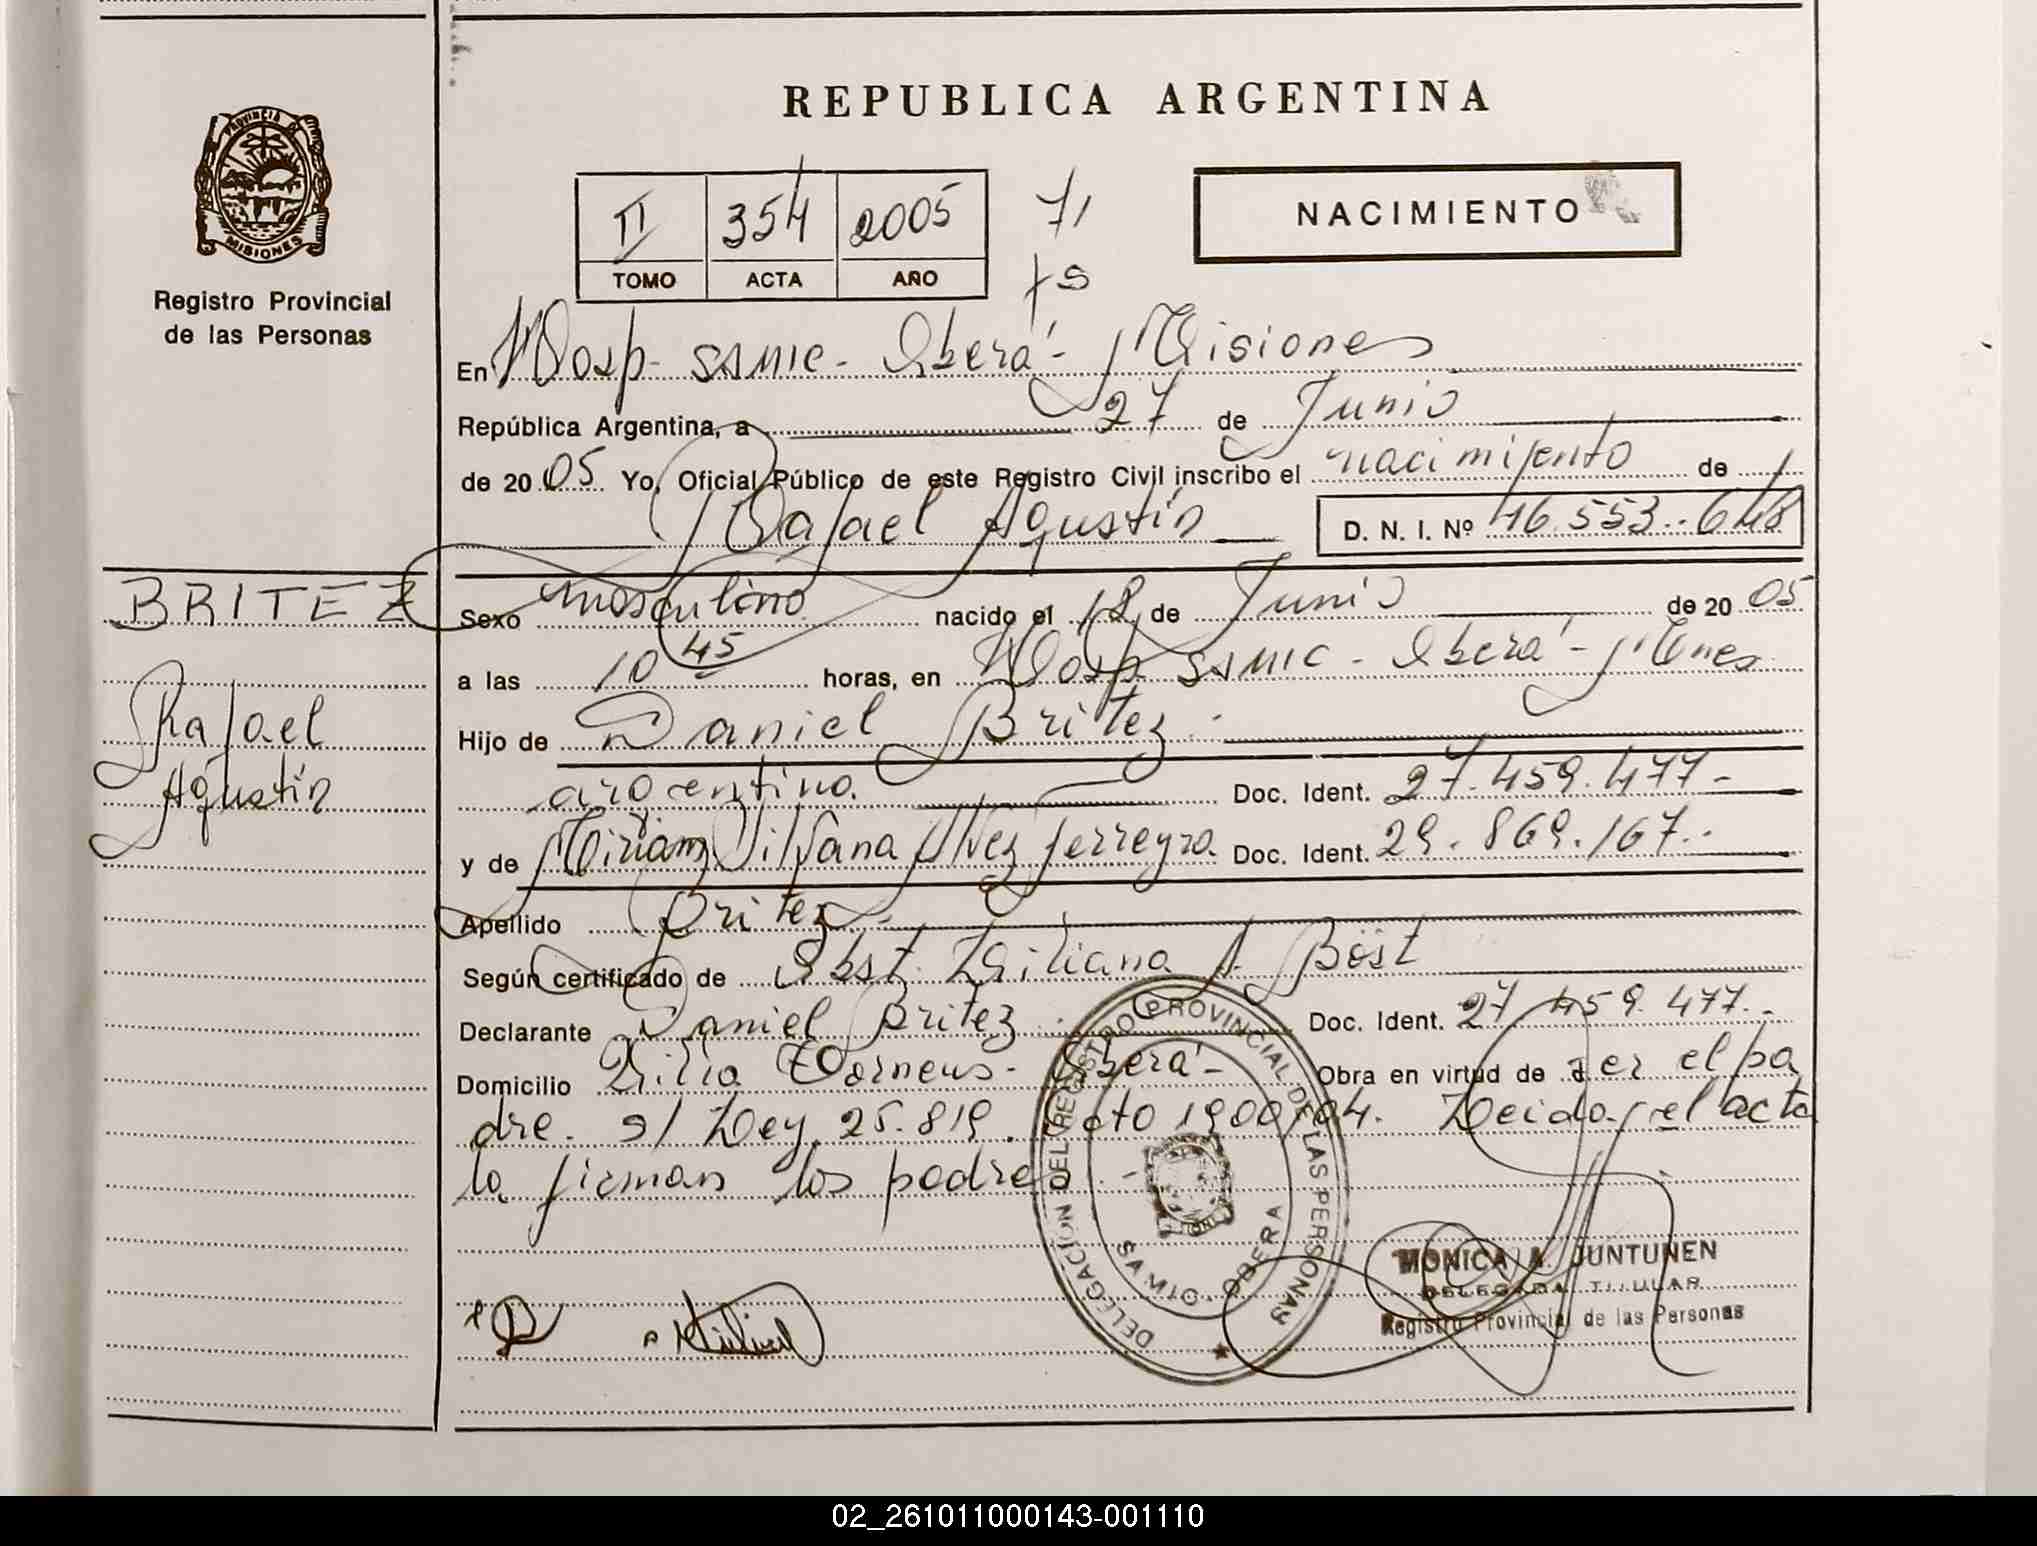 REPUBLICA ARGENTINA
PROVINCIA DE
MISIONES
Registro Provincial
de las Personas
II 354 2005
TOMO ACTA AÑO
71
fs
NACIMIENTO
En Hosp. SAMIC - Oberá - Misiones
República Argentina, a 27 de Junio
de 2005 Yo, Oficial Público de este Registro Civil inscribo el nacimiento de
Rafael Agustín D. N. I. Nº 46.553.648
BRITEZ
Rafael
Agustín
Sexo masculino nacido el 18 de Junio de 2005
a las 10 45 horas, en Hosp SAMIC - Oberá - Mnes
Hijo de Daniel Britez
argentino. Doc. Ident. 27.459.477-
y de Miriam Silvana Alvez Ferreyra Doc. Ident. 29.869.167.-
Apellido Britez
Según certificado de Obst. Liliana A. Böst
Declarante Daniel Britez Doc. Ident. 27 459 477.-
Domicilio Villa Oberá - Obra en virtud de ser el pa
dre. s/ Ley 25.819. Dto 1900/04. Leida el acta
la firman los padres
DELEGACIÓN DEL REGISTRO PROVINCIAL DE LAS PERSONAS
SAMIC - OBERA
MONICA A. JUNTUNEN
DELEGADA TITULAR
Registro Provincial de las Personas
02_261011000143-001110